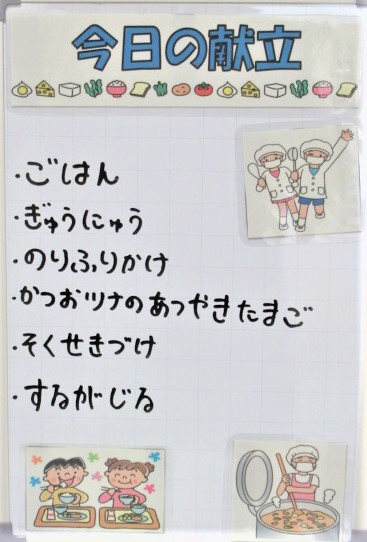 今日の献立
・ごはん
・ぎゅうにゅう
・のりふりかけ
・かつおツナのあつやきたまご
・そくせきづけ
・するがじる